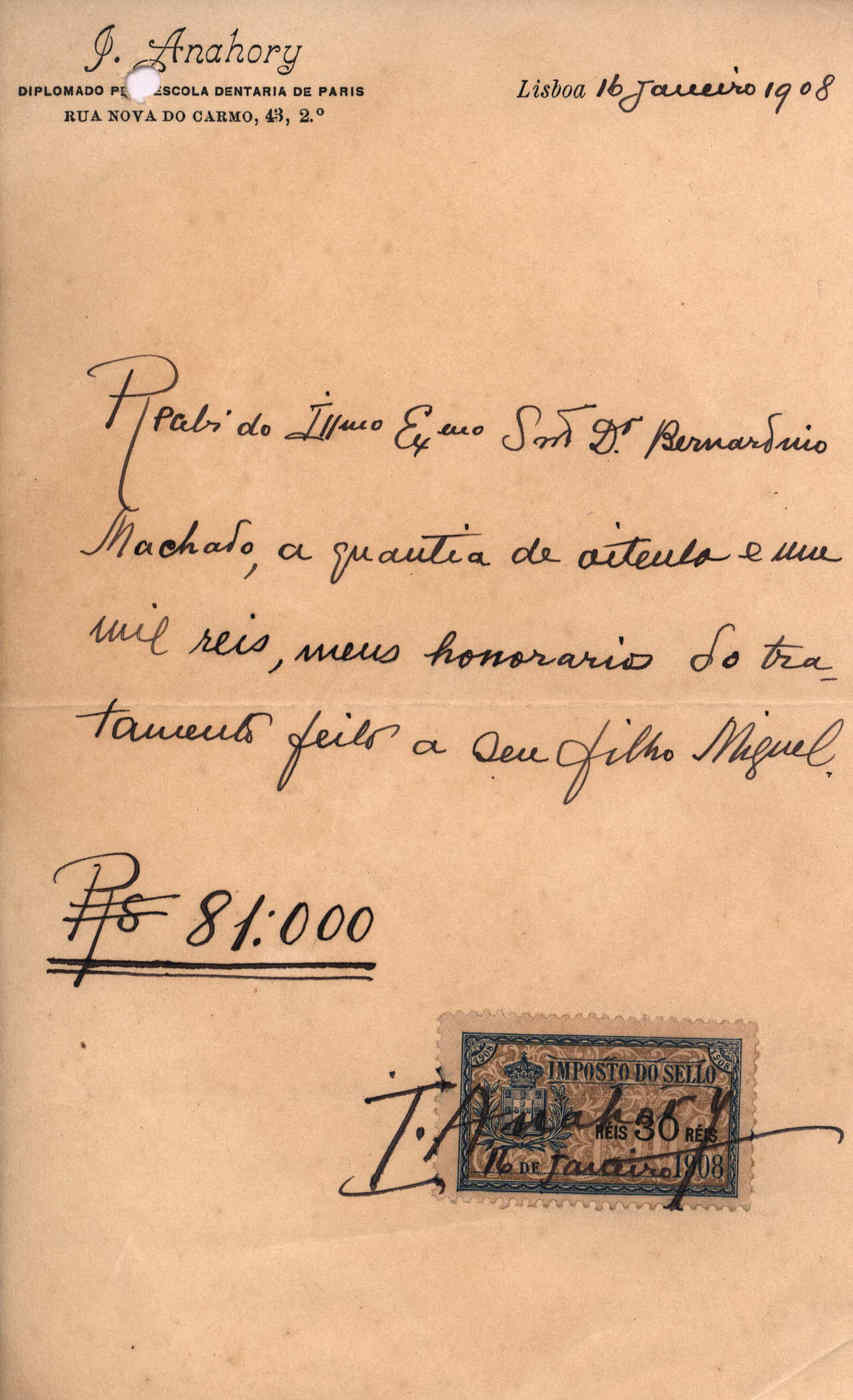 J. Anahory
DIPLOMADO PE ESCOLA DENTARIA DE PARIS
RUA NOVA DO CARMO, 43, 2.º
Lisboa 16 Janeiro 1908
do Illmo Exmo Snr Dr Bernardino
Machado, a quantia de oitenta e um
mil reis, meus honorarios do tra-
tamento feito a seu filho Miguel.
Rs 81:000
1908 1908
IMPOSTO DO SELLO
RÉIS 30 RÉIS
16 DE Janeiro 1908
J. Anahory